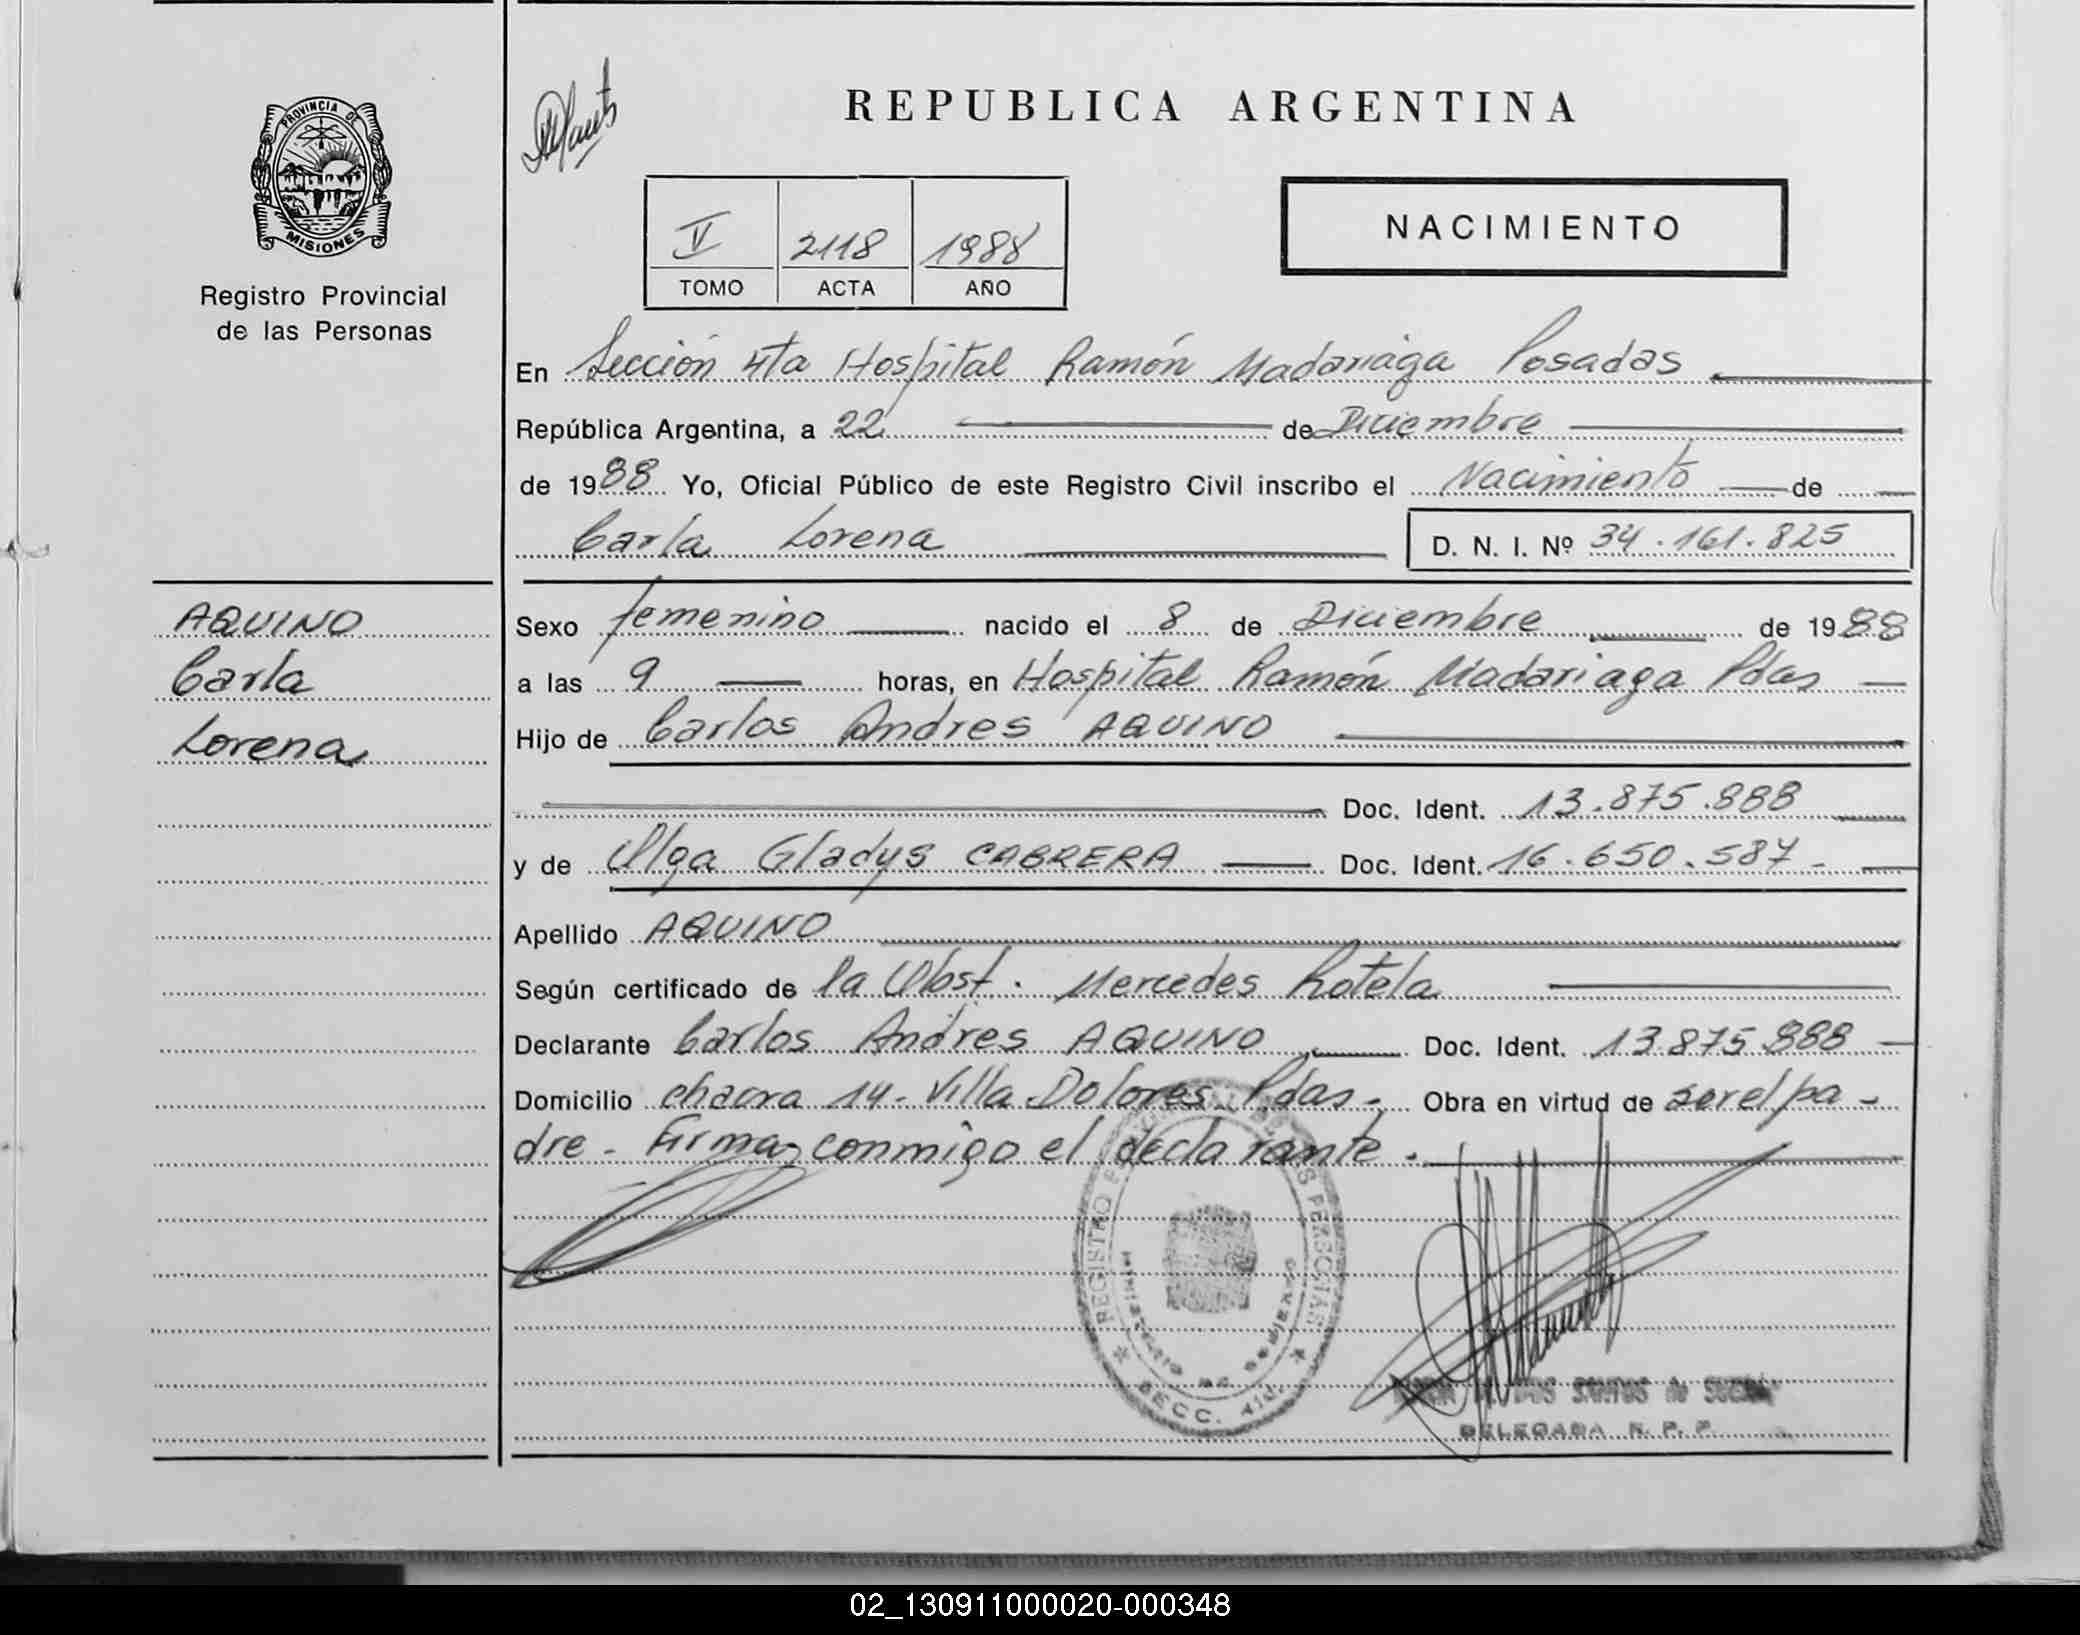 PROVINCIA DE
MISIONES
Registro Provincial
de las Personas
AQUINO
Carla
Lorena
REPUBLICA ARGENTINA
V 2118 1988
TOMO ACTA AÑO
NACIMIENTO
En Sección 4ta Hospital Ramón Madariaga Posadas
República Argentina, a 22 de Diciembre
de 1988 Yo, Oficial Público de este Registro Civil inscribo el Nacimiento de
Carla Lorena D. N. I. Nº 34.161.825
Sexo femenino nacido el 8 de Diciembre de 1988
a las 9 horas, en Hospital Ramón Madariaga Pdas
Hijo de Carlos Andres AQUINO
Doc. Ident. 13.875.888
y de Olga Gladys CABRERA Doc. Ident. 16.650.587-
Apellido AQUINO
Según certificado de la Obst. Mercedes Rotela
Declarante Carlos Andres AQUINO Doc. Ident. 13.875.888
Domicilio chacra 14- Villa Dolores Pdas-, Obra en virtud de ser el pa-
dre- Firma conmigo el declarante.
REGISTRO PERSONAS
SECC. 4ta.
DOS SANTOS de
DELEGADA R. P. P.
02_130911000020-000348